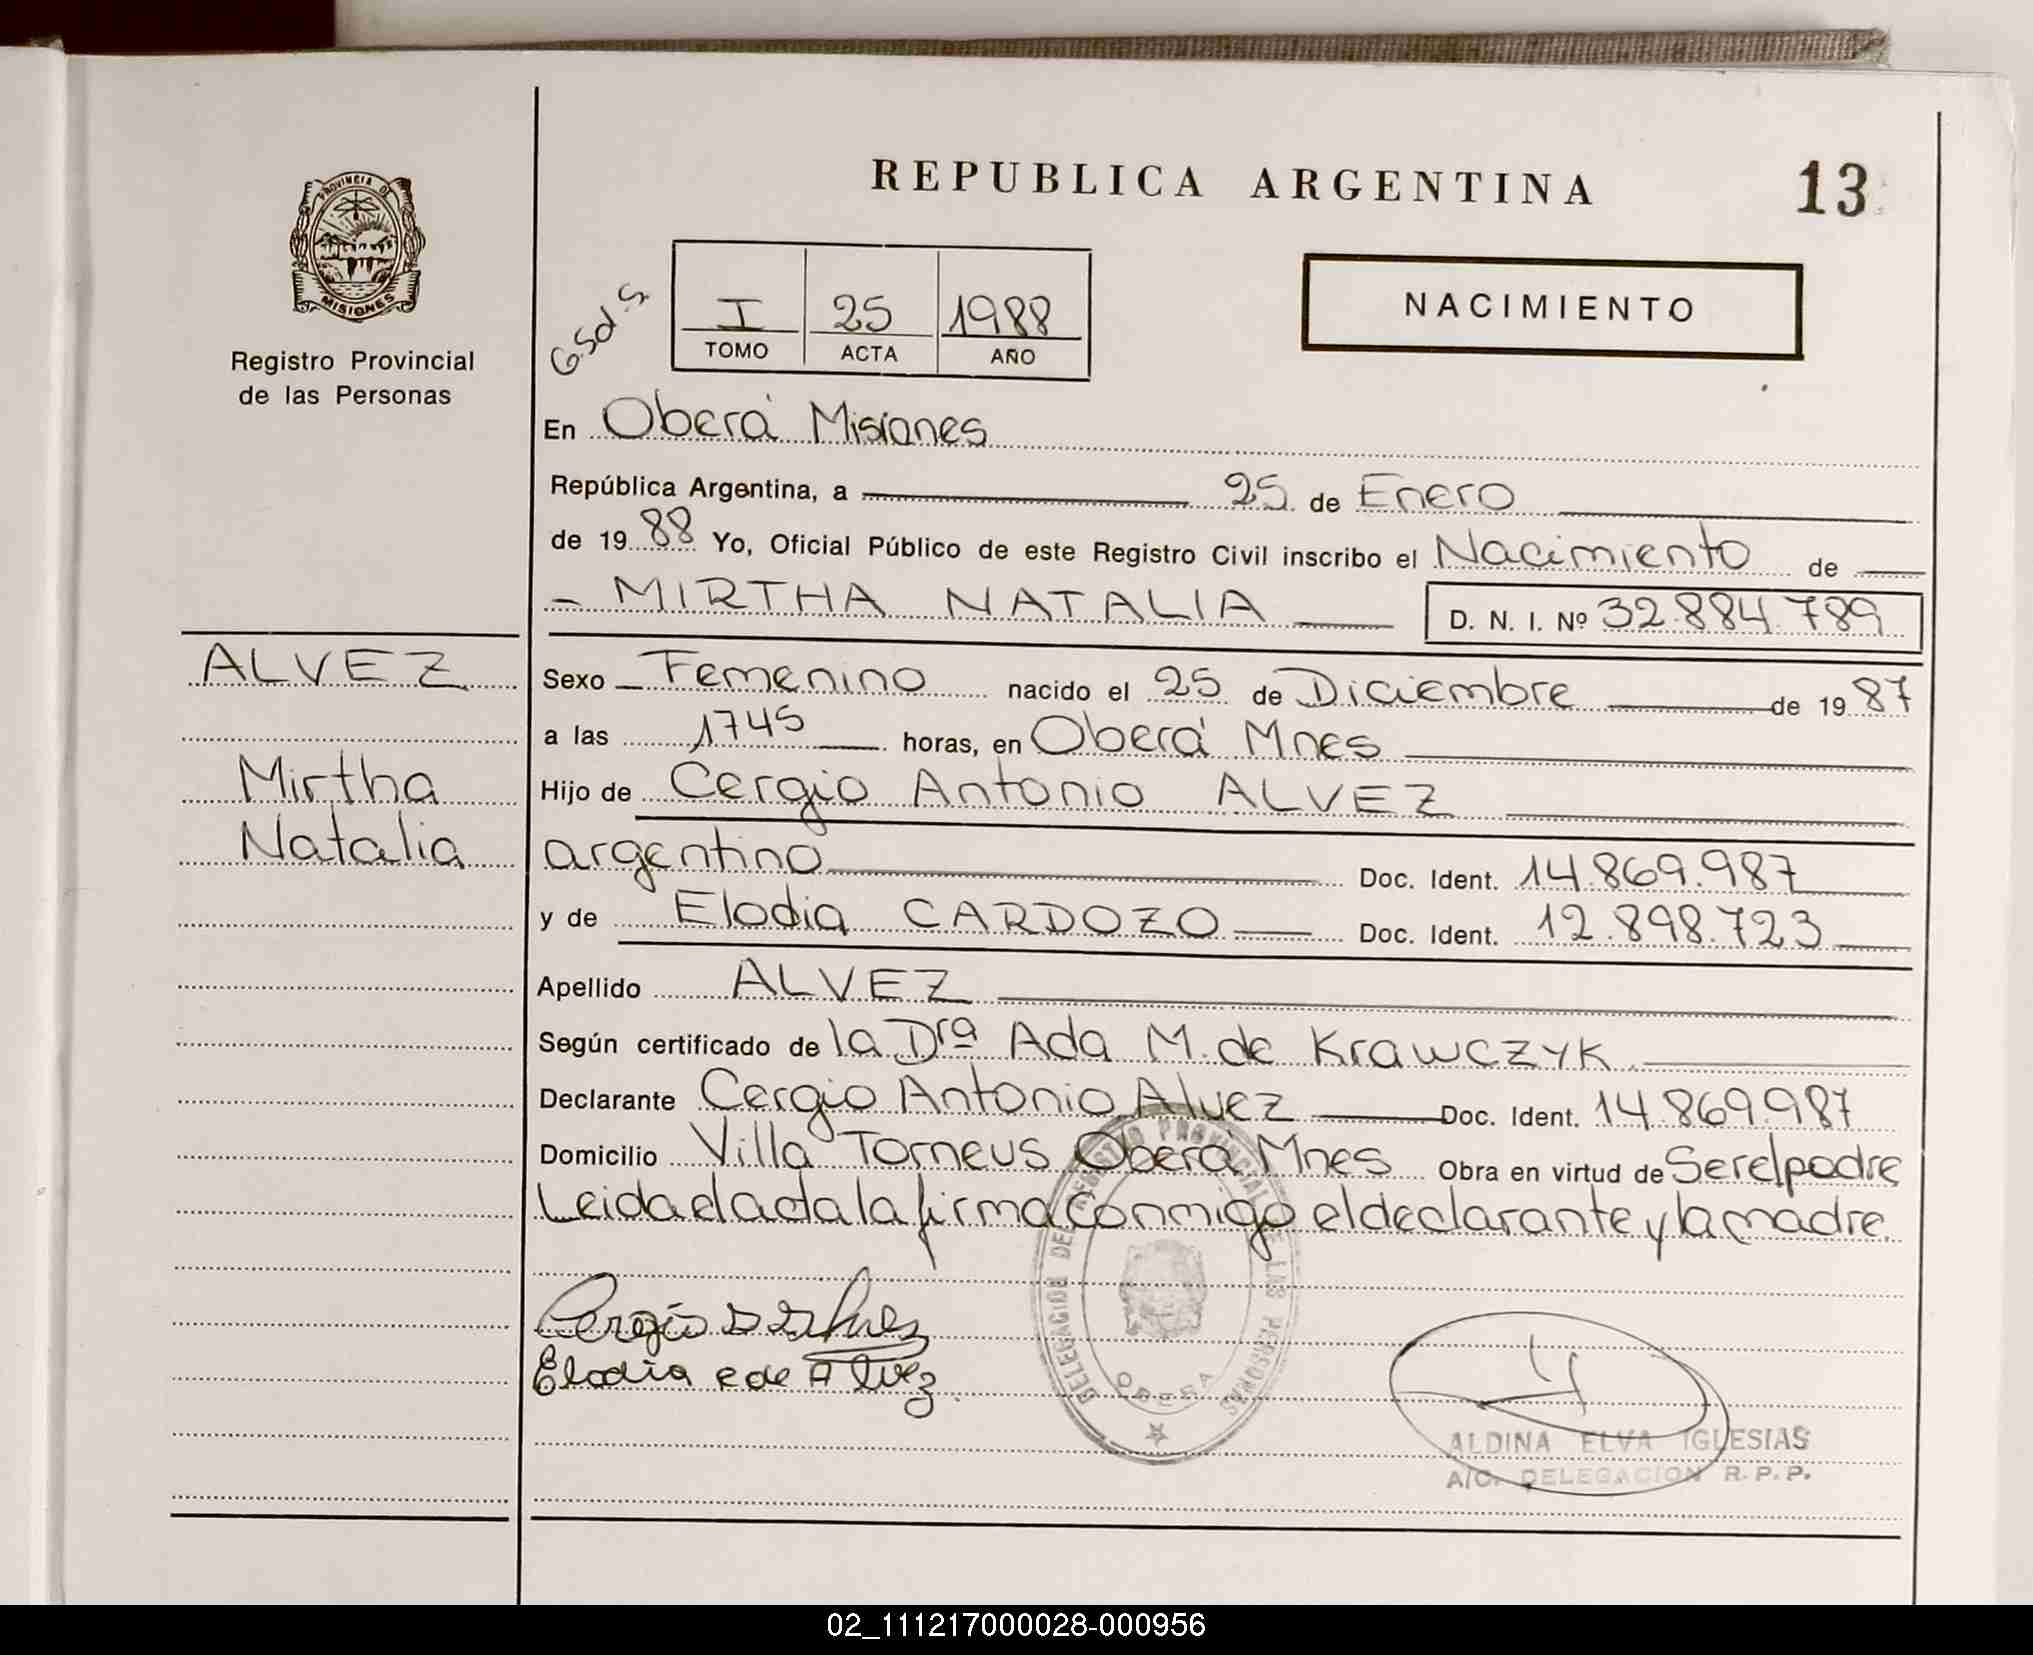 REPUBLICA ARGENTINA
13
PROVINCIA DE
MISIONES
Registro Provincial
de las Personas
G.Sol.S
I 25 1988
TOMO ACTA AÑO
NACIMIENTO
En Oberá Misiones
República Argentina, a 25 de Enero
de 1988 Yo, Oficial Público de este Registro Civil inscribo el Nacimiento de
- MIRTHA NATALIA
D. N. I. Nº 32.884.789
ALVEZ
Mirtha
Natalia
Sexo Femenino nacido el 25 de Diciembre de 1987
a las 1745 horas, en Oberá Mnes
Hijo de Cergio Antonio ALVEZ
argentino Doc. Ident. 14.869.987
y de Elodia CARDOZO Doc. Ident. 12.898.723
Apellido ALVEZ
Según certificado de la Drª Ada M. de Krawczyk
Declarante Cergio Antonio Alvez Doc. Ident. 14.869.987
Domicilio Villa Torneus Oberá Mnes Obra en virtud de Ser el padre
Leida el acta la firma conmigo el declarante y la madre.
DELEGACION DEL REGISTRO PROVINCIAL DE LAS PERSONAS
OBERA
Elodia c de Alvez.
ALDINA ELVA IGLESIAS
A/C. DELEGACION R. P. P.
02_111217000028-000956